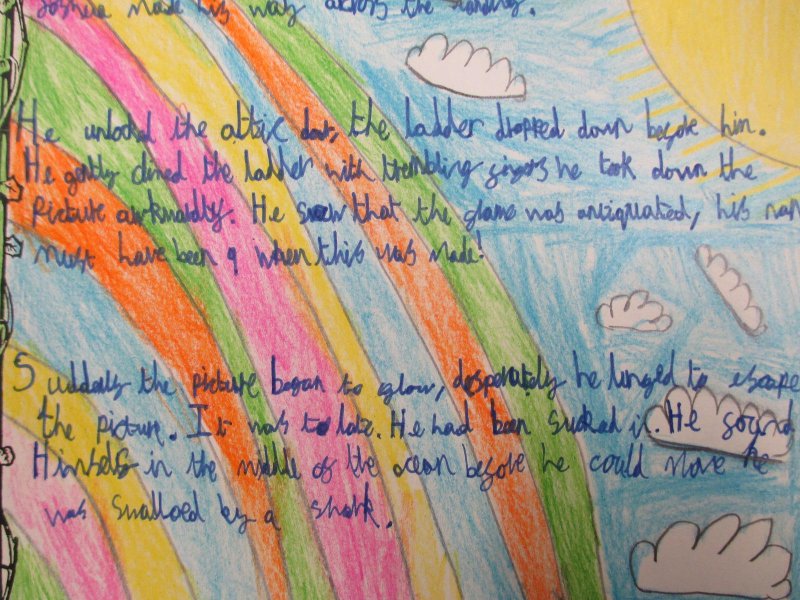 Joshua made his way across the landing.
He unlocked the attic door, the ladder dropped down before him.
He gently climed the ladder with trembling fingers he took down the
Picture awkwardly. He saw that the frame was antiquated, his nan
must have been 9 when this was made!
Suddenly the picture began to glow, desperately he lunged to escape
the picture. It was to late. He had been sucked in. He found
Himself in the middle of the ocean before he could move he
was swalloed by a shark.